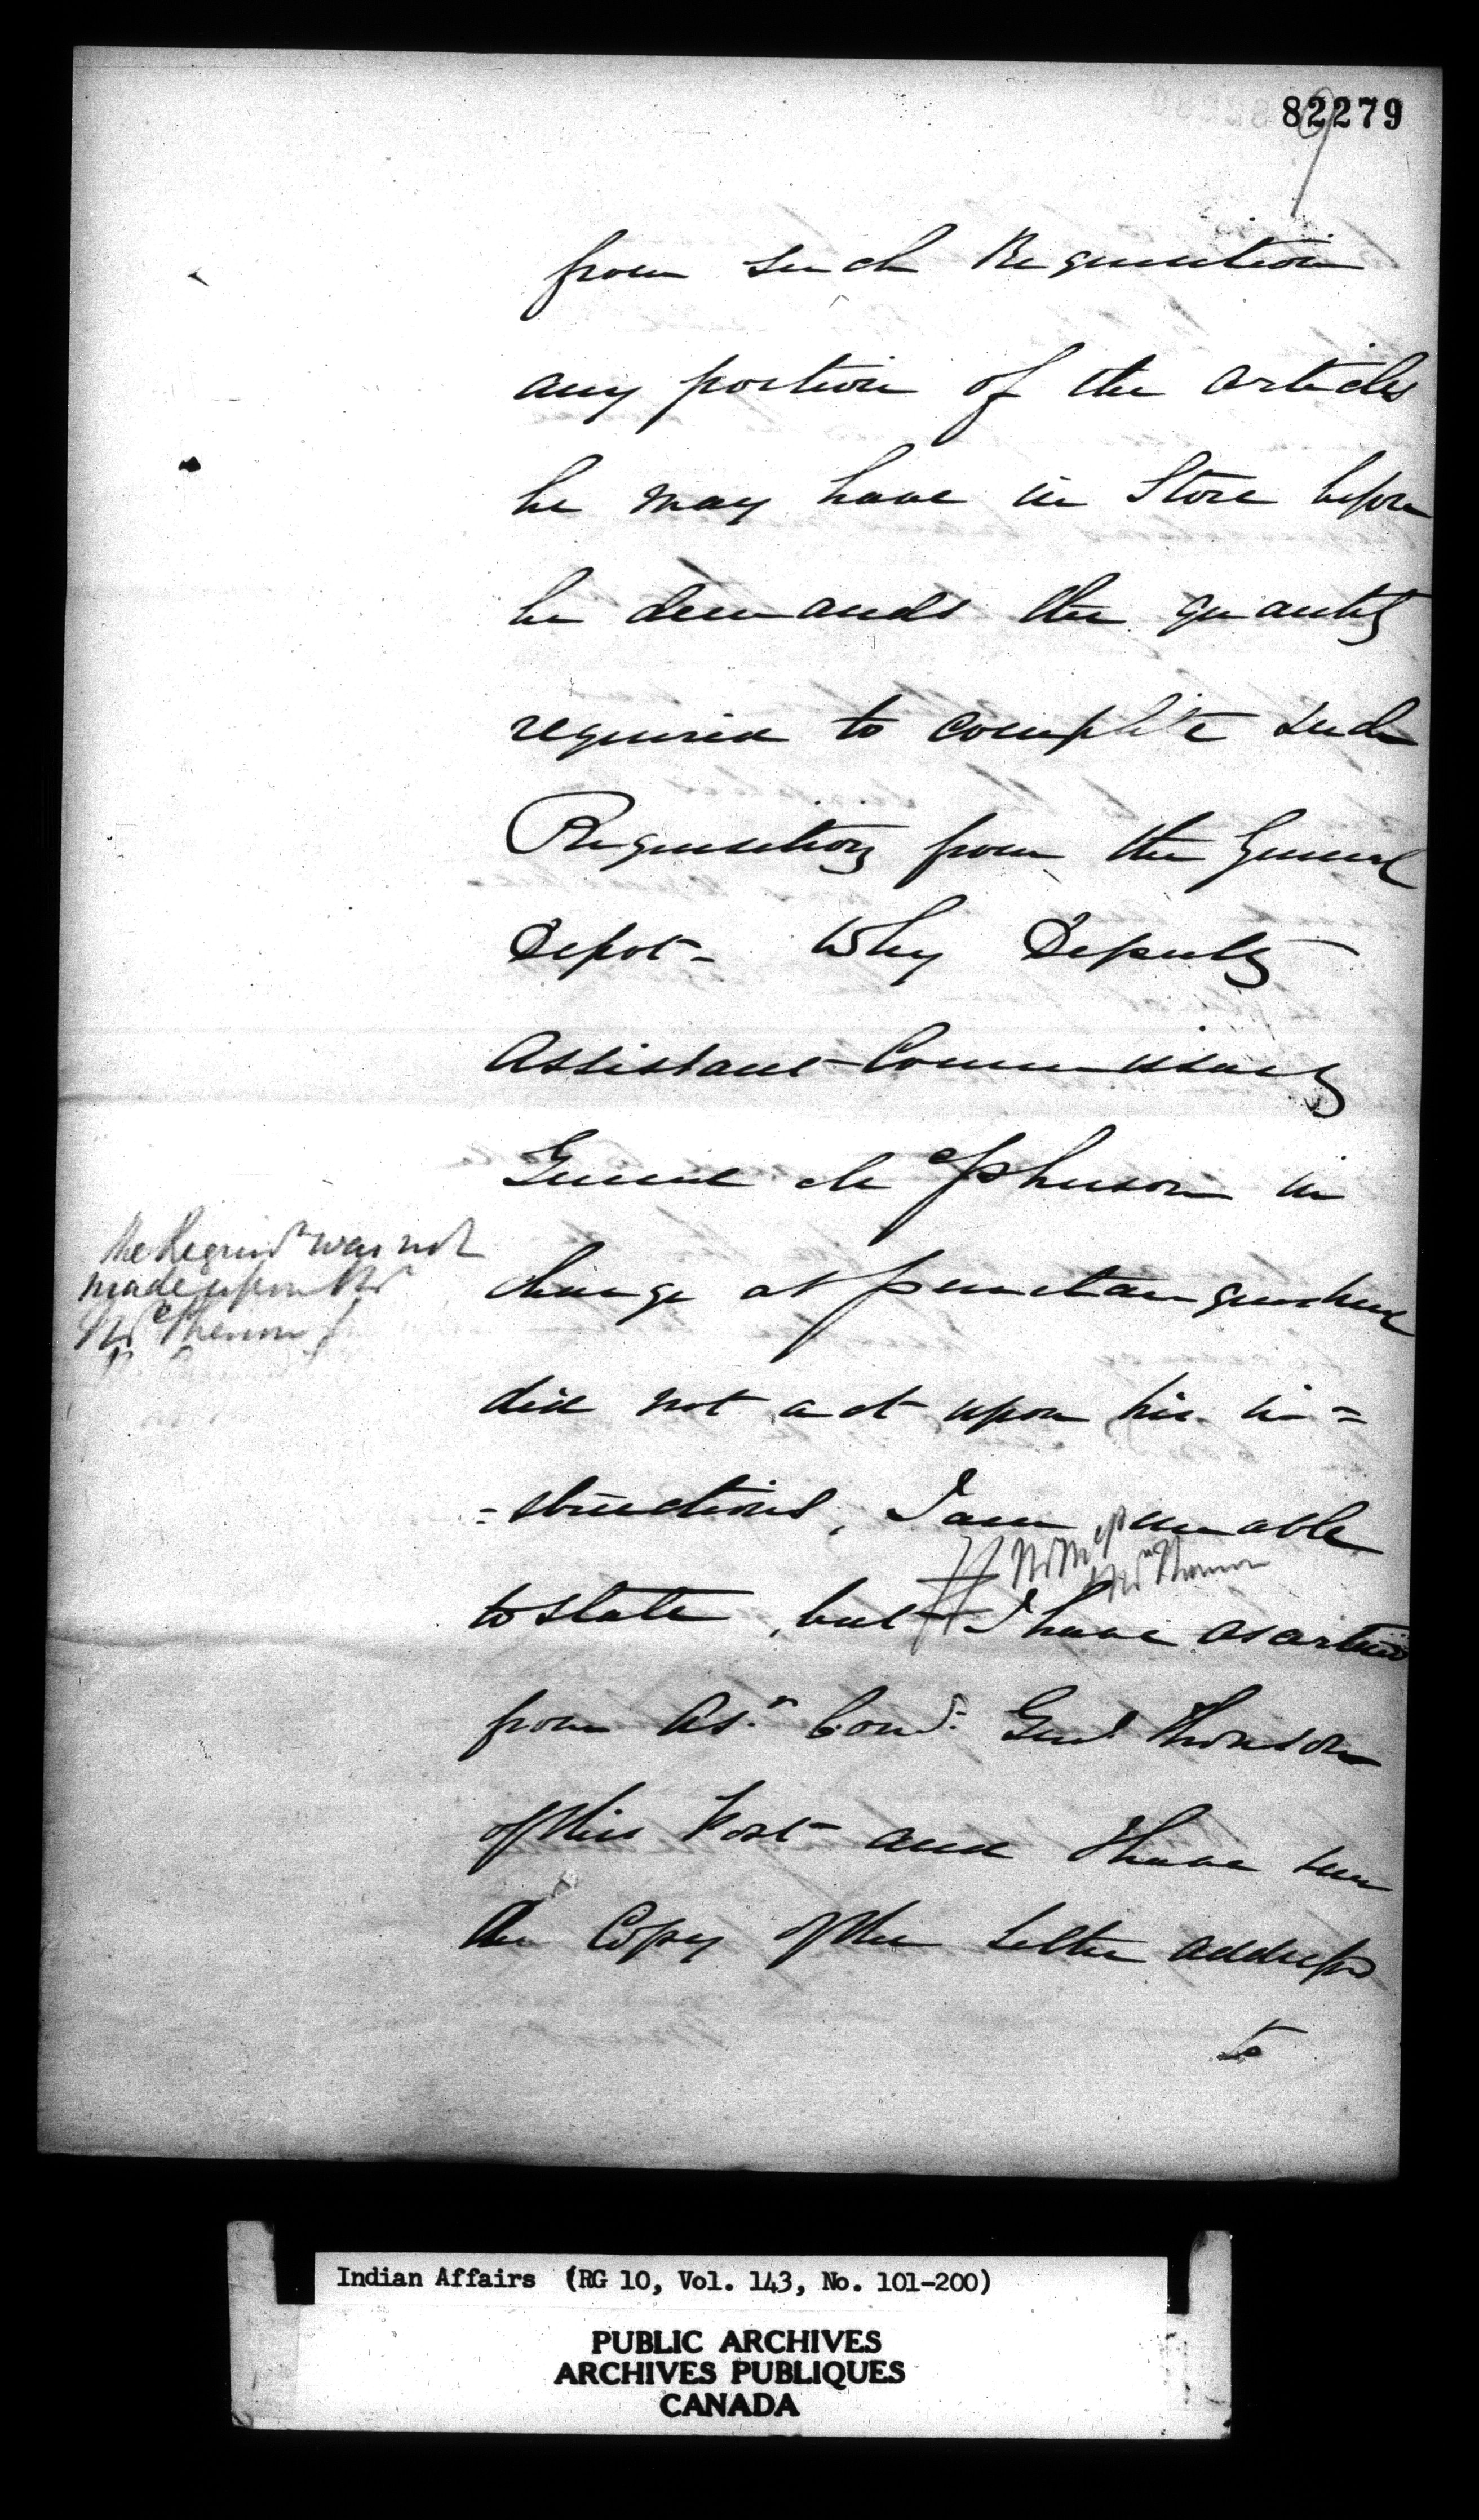 82279
9
from such Requisition
any portion of the articles
he may have in Store before
he demands the quantity
required to complete such
Requisition from the General
Depot - Why Deputy
Assistant Commissary
General McPherson in
the Requisn was not
made upon Mr
McPherson
charge at Penetanguishene
did not act upon his in =
= structions, I am unable
to state, but I have ascertained
from Ast. Comy. Genl. Thomson
of this Post and I have seen
the Copy of the Letter addressed
to
Indian Affairs (RG 10, Vol. 143, No. 101-200)
PUBLIC ARCHIVES
ARCHIVES PUBLIQUES
CANADA